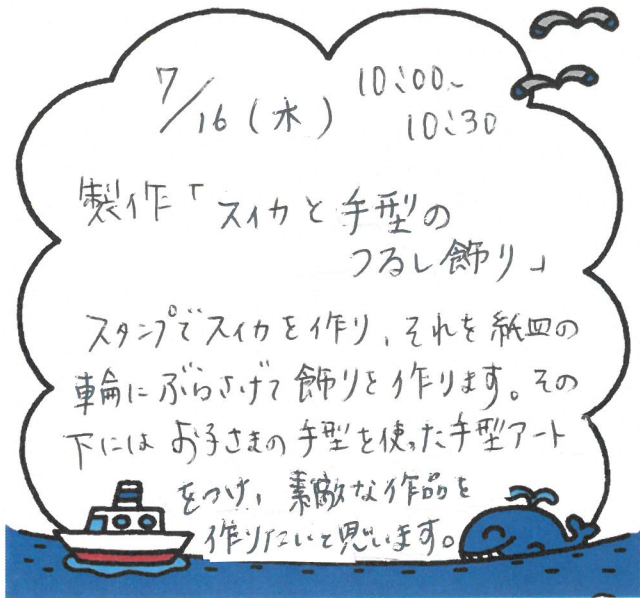 7/16(水) 10:00~
10:30
製作「スイカと手型の
つるし飾り」
スタンプでスイカを作り、それを紙皿の
車輪にぶらさげて飾りを作ります。その
下にはお子さまの手型を使った手型アート
をつけ、素敵な作品を
作りたいと思います。